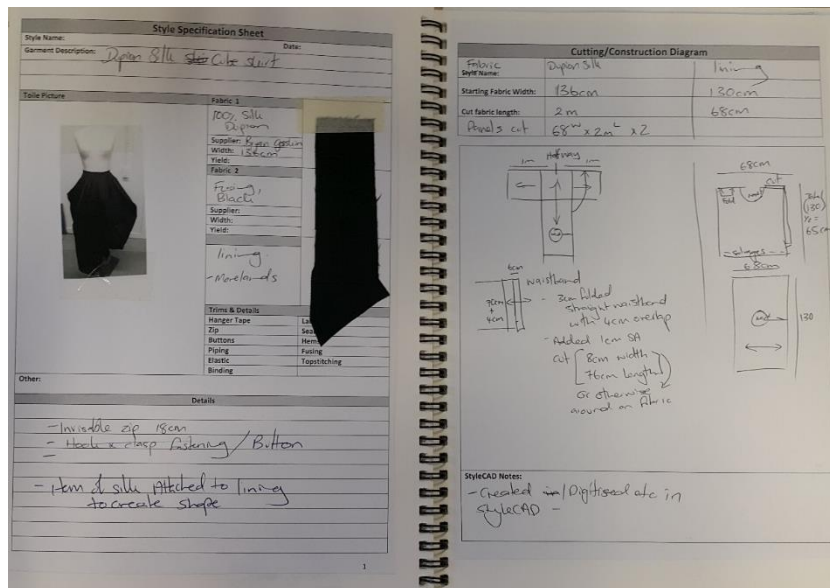 Style Specification Sheet
Style Name:
Date:
Garment Description: Dupion Silk Cube skirt
Toile Picture
Fabric 1
100% Silk
Dupion
Supplier: Bryan
Width: 136cm
Yield:
Fabric 2
Fusing,
Black
Supplier:
Width:
Yield:
lining
Trims & Details
Hanger Tape
Zip
Buttons
Piping
Fusing
Elastic
Topstitching
Binding
Other:
Details
- Invisible zip 18cm
- Hook & clasp fastening / Button
-
- Hem of silk Attached to lining
to create shape
1
Cutting/Construction Diagram
Fabric
Style Name:
Dupion Silk
lining
Starting Fabric Width: 136cm 130cm
Cut fabric length: 2m 68cm
Panels cut 68w x 2mL x2
1m
Halfway
1m
68cm
cut
fold
Total
(130)
1/2 =
65cm
selvages
68cm
130
6cm
waistband
- 3cm folded
straight waistband
with 4cm overlap
- Added 1cm SA
cut 8cm width
76cm length
or otherwise
around on fabric
StyleCAD Notes:
- Created /Digitised etc in
StyleCAD -